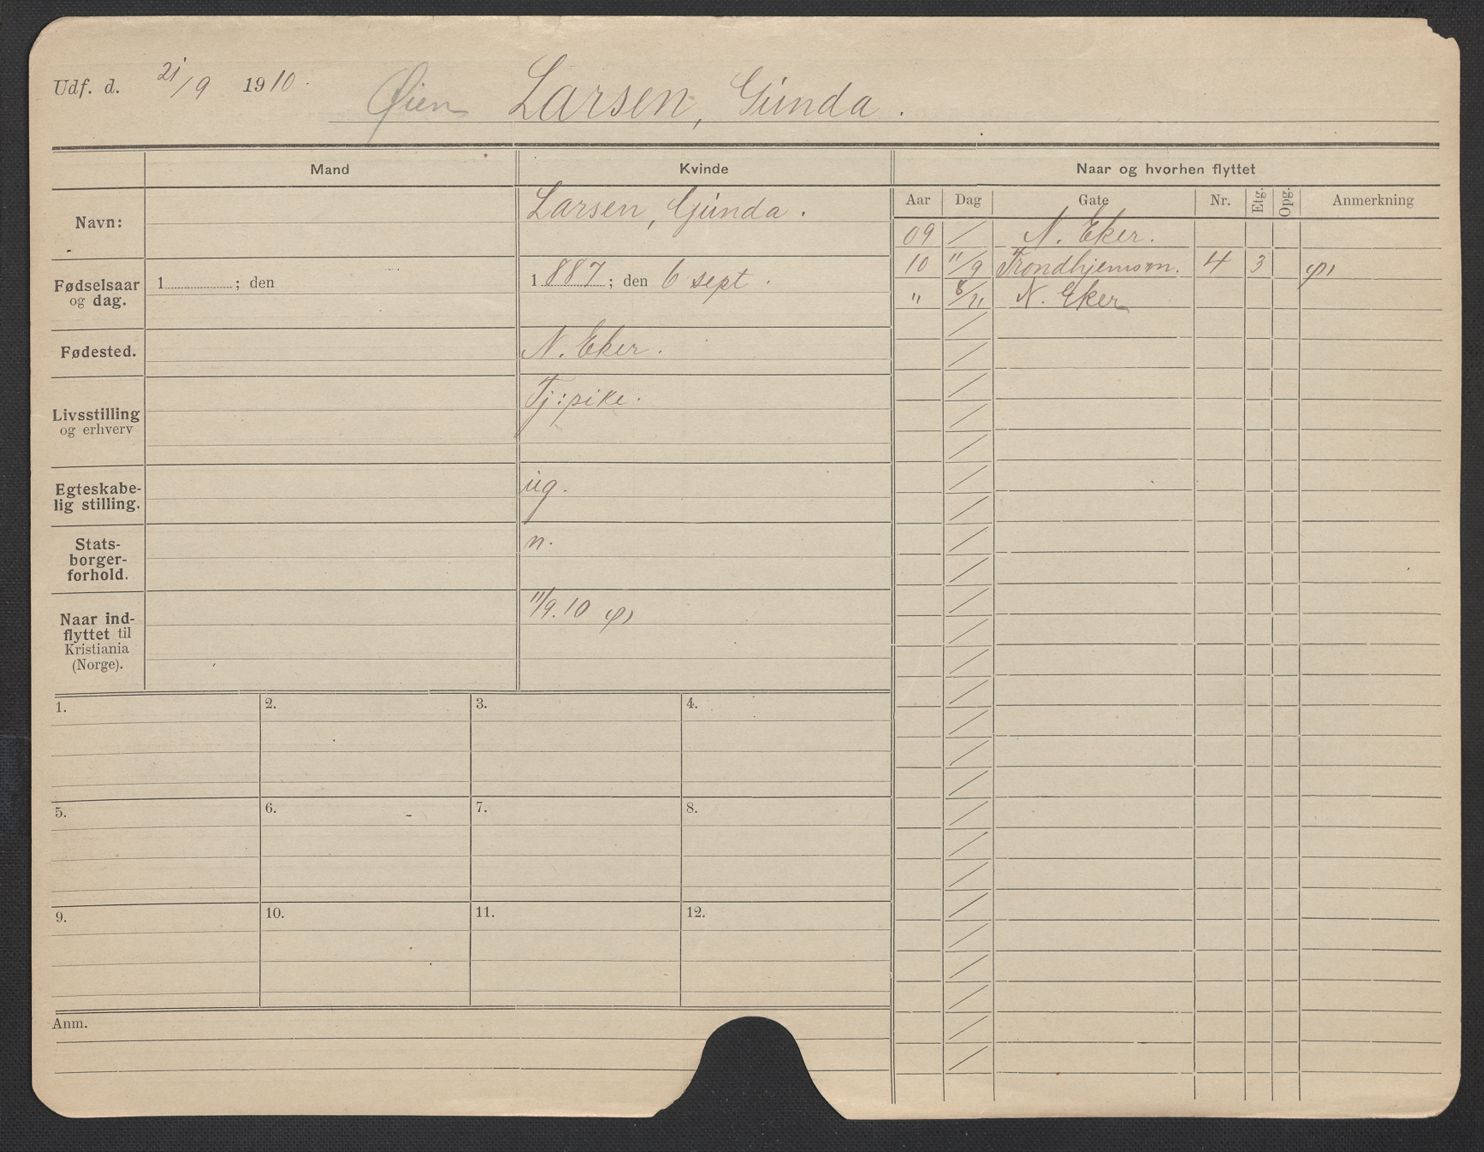 Udf. d. 21/9 1910. Øien Larsen, Gunda.
Mand
Kvinde
Naar og hvorhen flyttet
Navn:
Larsen, Gunda.
Aar Dag Gate Nr. Etg. Opg. Anmerkning
09 / N. Eker.
10 11/9 Trondhjemsvn. 4 3
" 8/11 N. Eker
Fødselsaar
og dag.
1 ; den
1 887 ; den 6 sept.
Fødested.
N. Eker.
Livsstilling
og erhverv
Tj: pike.
Egteskabe-
lig stilling.
ug.
Stats-
borger-
forhold.
n.
Naar ind-
flyttet til
Kristiania
(Norge).
11/9.10
1. 2. 3. 4.
5. 6. 7. 8.
9. 10. 11. 12.
Anm.